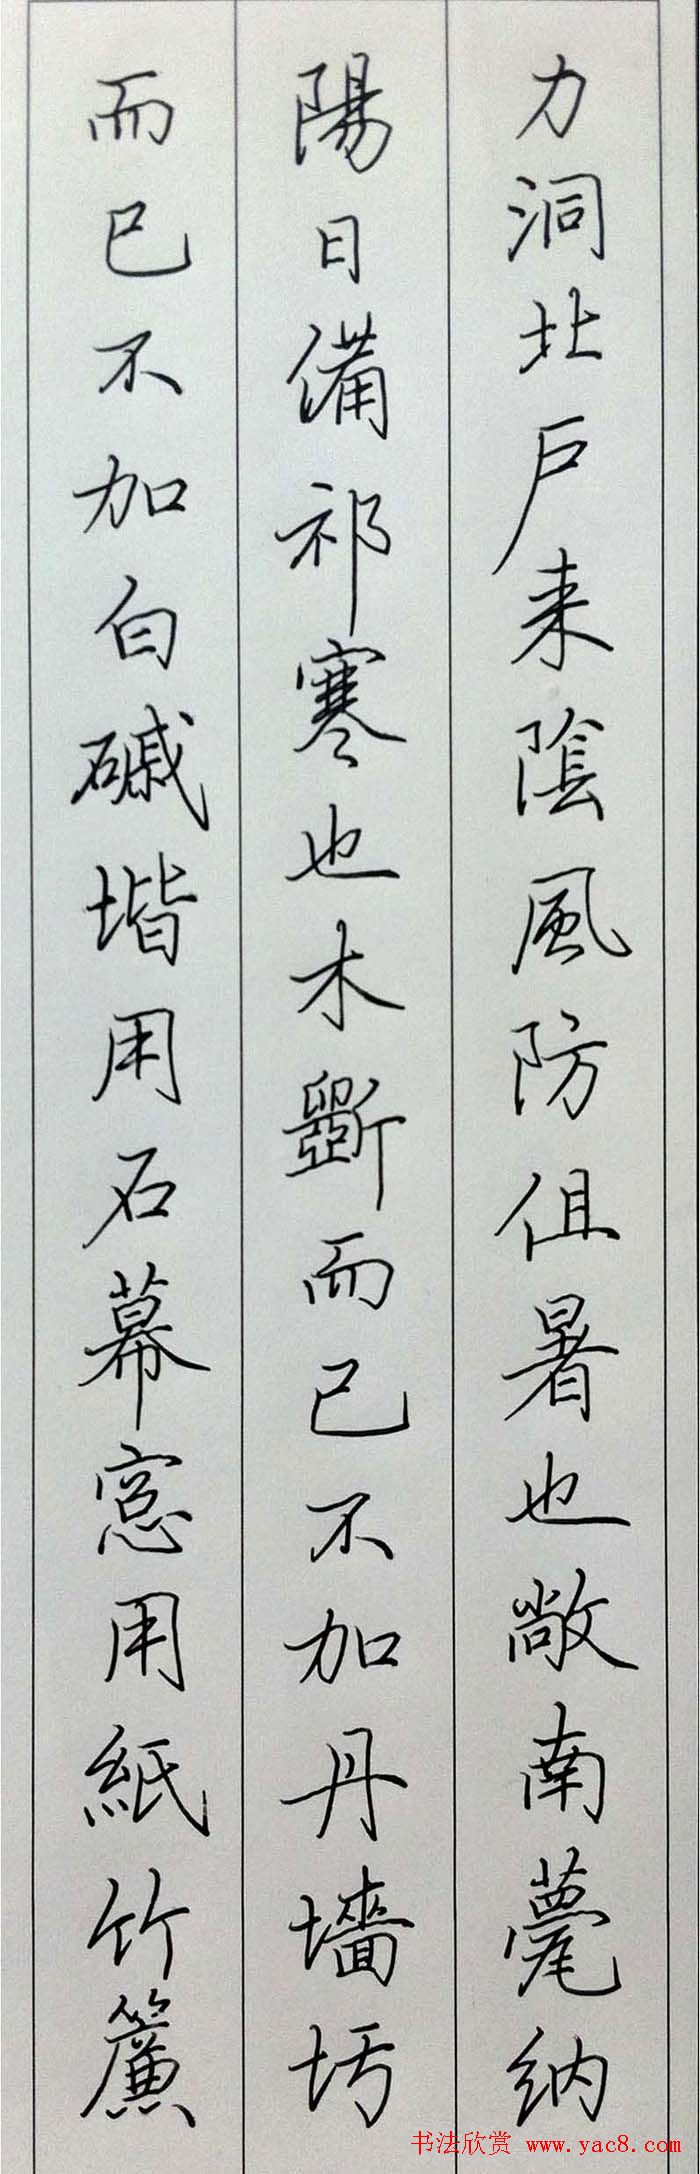 力洞北戶来陰風防徂暑也敞南甍纳
陽日備祁寒也木斲而已不加丹墻圬
而已不加白磩堦用石幕窓用紙竹簾
书法欣赏 www.yac8.com